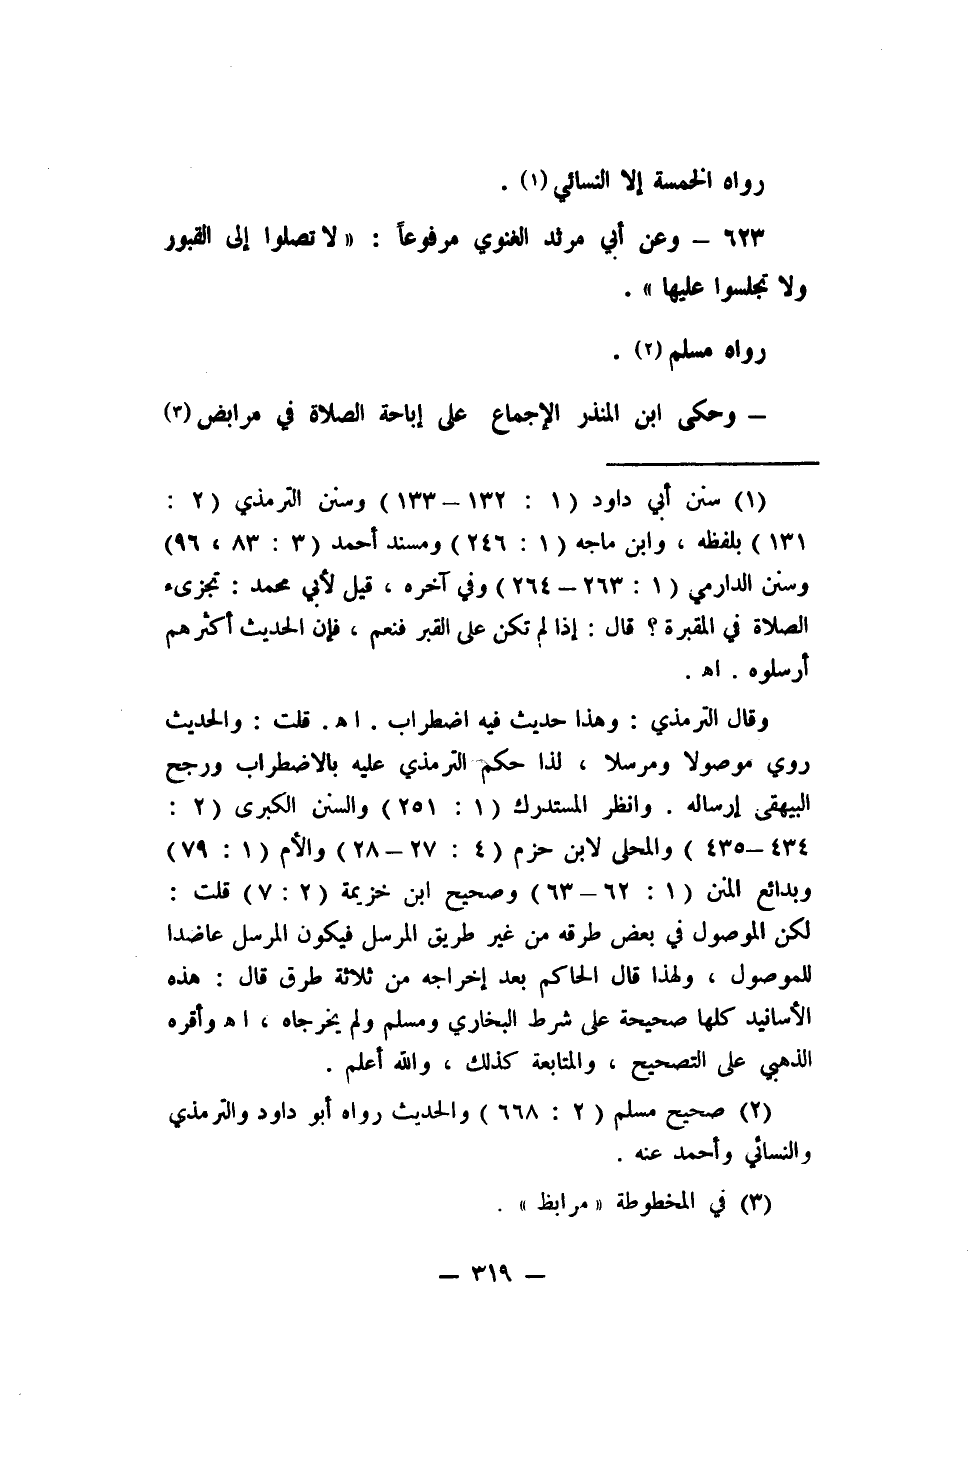 رواه الخمسة إلا النسائي (١) .
٦٢٣ – وعن أبي مرثد الغنوي مرفوعاً : « لا تصلوا إلى القبور
ولا تجلسوا عليها » .
رواه مسلم (٢) .
– وحكى ابن المنذر الإجماع على إباحة الصلاة في مرابض (٣)
(١) سنن أبي داود ( ١ : ١٣٢ – ١٣٣ ) وسنن الترمذي ( ٢ :
١٣١ ) بلفظه ، وابن ماجه ( ١ : ٢٤٦ ) ومسند أحمد ( ٣ : ٨٣ ، ٩٦ )
وسنن الدارمي ( ١ : ٢٦٣ – ٢٦٤ ) وفي آخره ، قيل لأبي محمد : تجزىء
الصلاة في المقبرة ؟ قال : إذا لم تكن على القبر فنعم ، فإن الحديث أكثرهم
أرسلوه . اه .
وقال الترمذي : وهذا حديث فيه اضطراب . اه . قلت : والحديث
روي موصولا ومرسلا ، لذا حكم الترمذي عليه بالاضطراب ورجح
البيهقي إرساله . وانظر المستدرك ( ١ : ٢٥١ ) والسنن الكبرى ( ٢ :
٤٣٤ – ٤٣٥ ) والمحلى لابن حزم ( ٤ : ٢٧ – ٢٨ ) والأم ( ١ : ٧٩ )
وبدائع المنن ( ١ : ٦٢ – ٦٣ ) وصحيح ابن خزيمة ( ٢ : ٧ ) قلت :
لكن الموصول في بعض طرقه من غير طريق المرسل فيكون المرسل عاضدا
للموصول ، ولهذا قال الحاكم بعد إخراجه من ثلاثة طرق قال : هذه
الأسانيد كلها صحيحة على شرط البخاري ومسلم ولم يخرجاه ، اه وأقره
الذهبي على التصحيح ، والمتابعة كذلك ، والله أعلم .
(٢) صحيح مسلم ( ٢ : ٦٦٨ ) والحديث رواه أبو داود والترمذي
والنسائي وأحمد عنه .
(٣) في المخطوطة « مرابظ » .
– ٣١٩ –